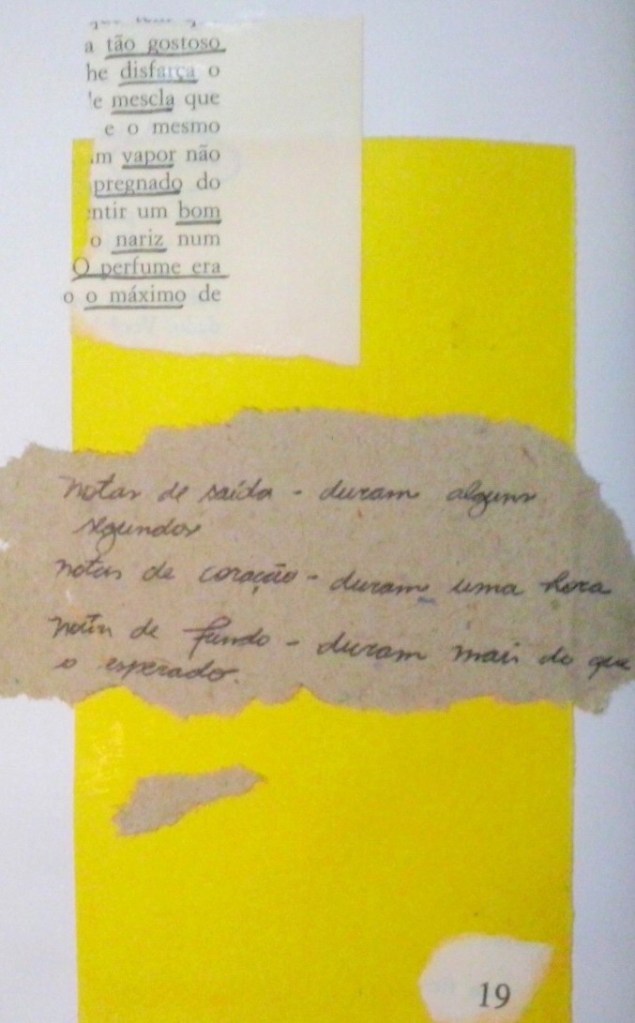 a tão gostoso
he disfarça o
'e mescla que
e o mesmo
m vapor não
pregnado do
entir um bom
o nariz num
O perfume era
o o máximo de
notas de saída - duram alguns
segundos
notas de coração - duram uma hora
notas de fundo - duram mais do que
o esperado.
19